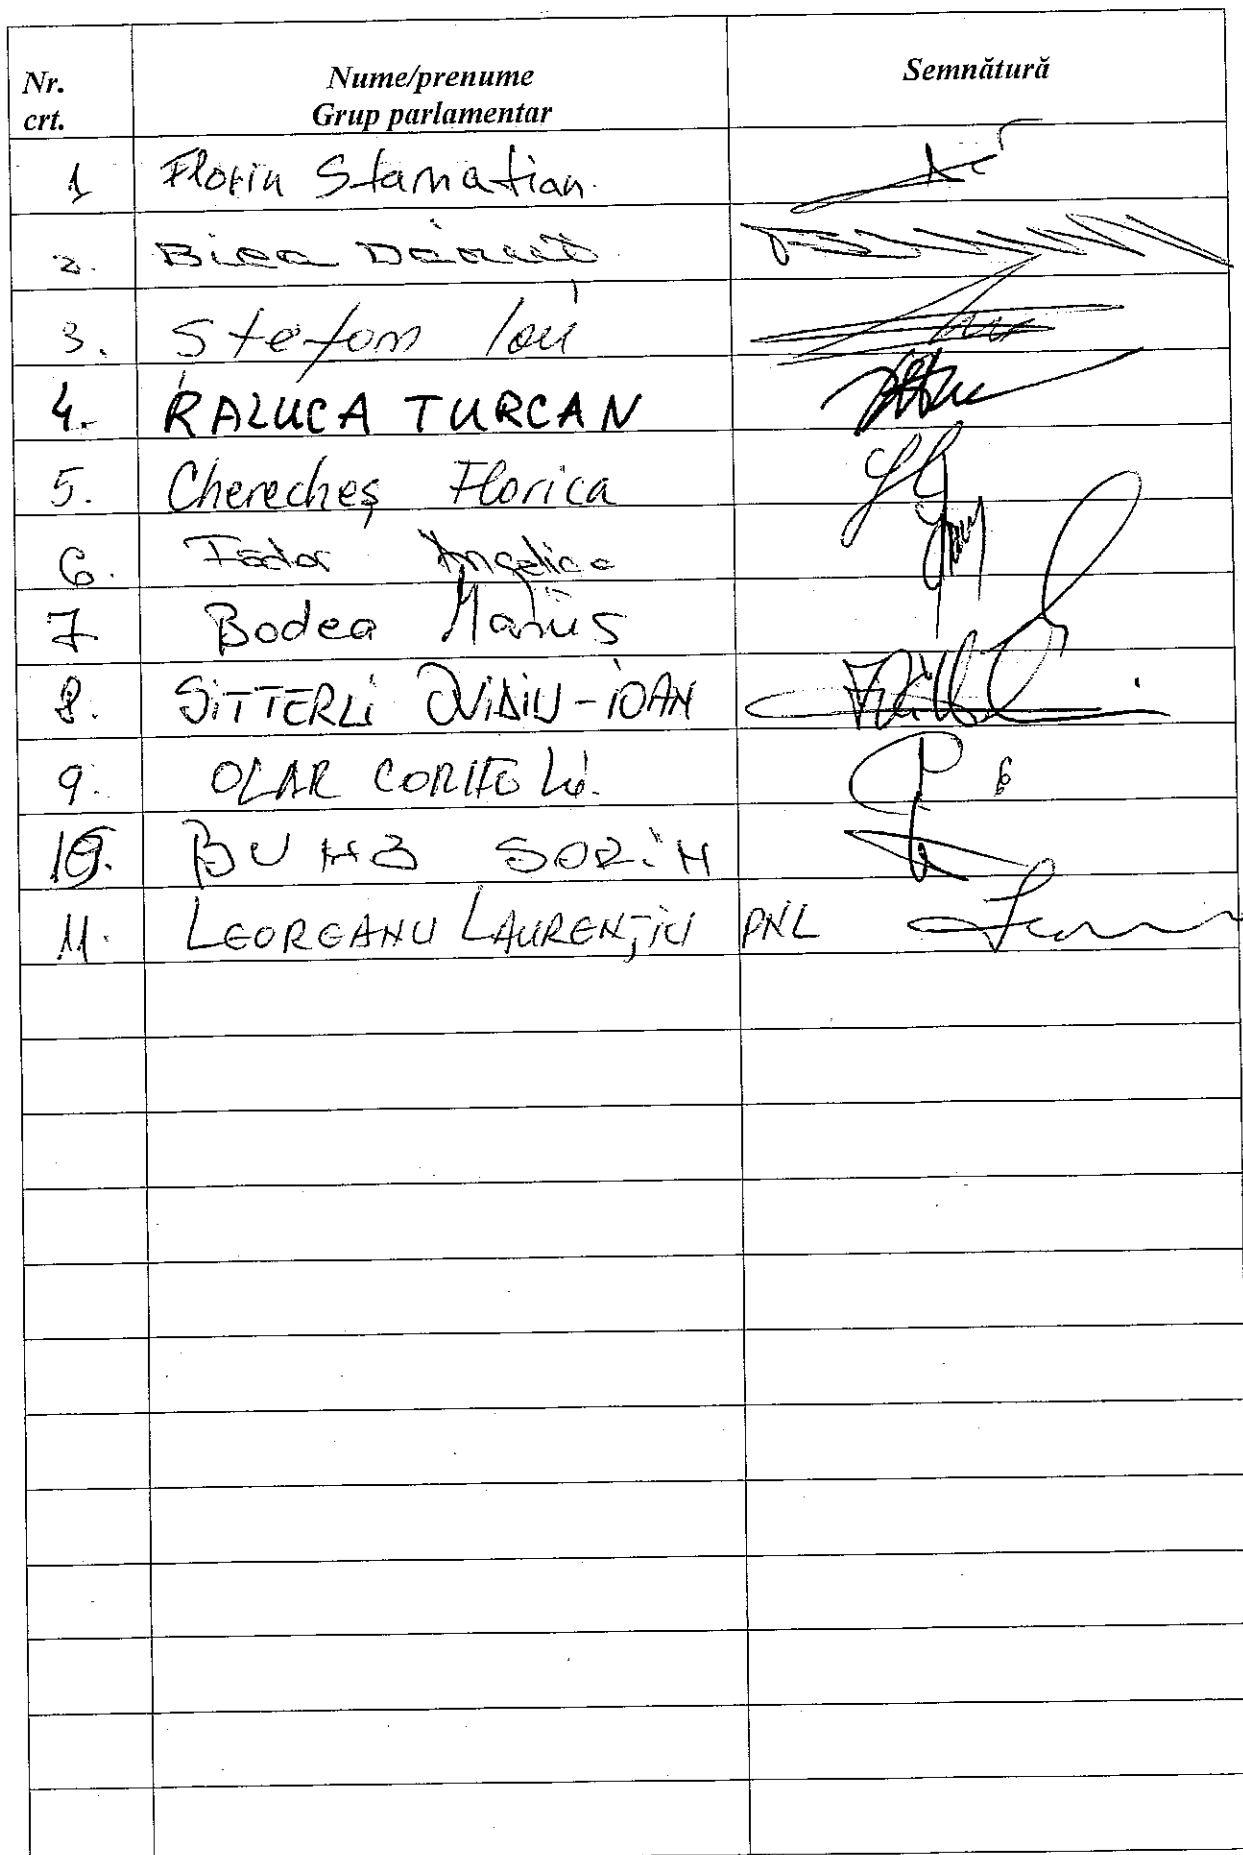 Nr. crt.
Nume/prenume
Grup parlamentar
Semnătură
1 Florin Stamatian.
2. Bica Dănuț
3. Ștefan Ion
4. RALUCA TURCAN
5. Cherecheș Florica
6. Fador Angelica
7 Bodea Marius
8. SITTERLI OVIDIU-IOAN
9. OLAR CORNELIU.
10. BUMB SORIN
11. LEOREANU LAURENȚIU PNL